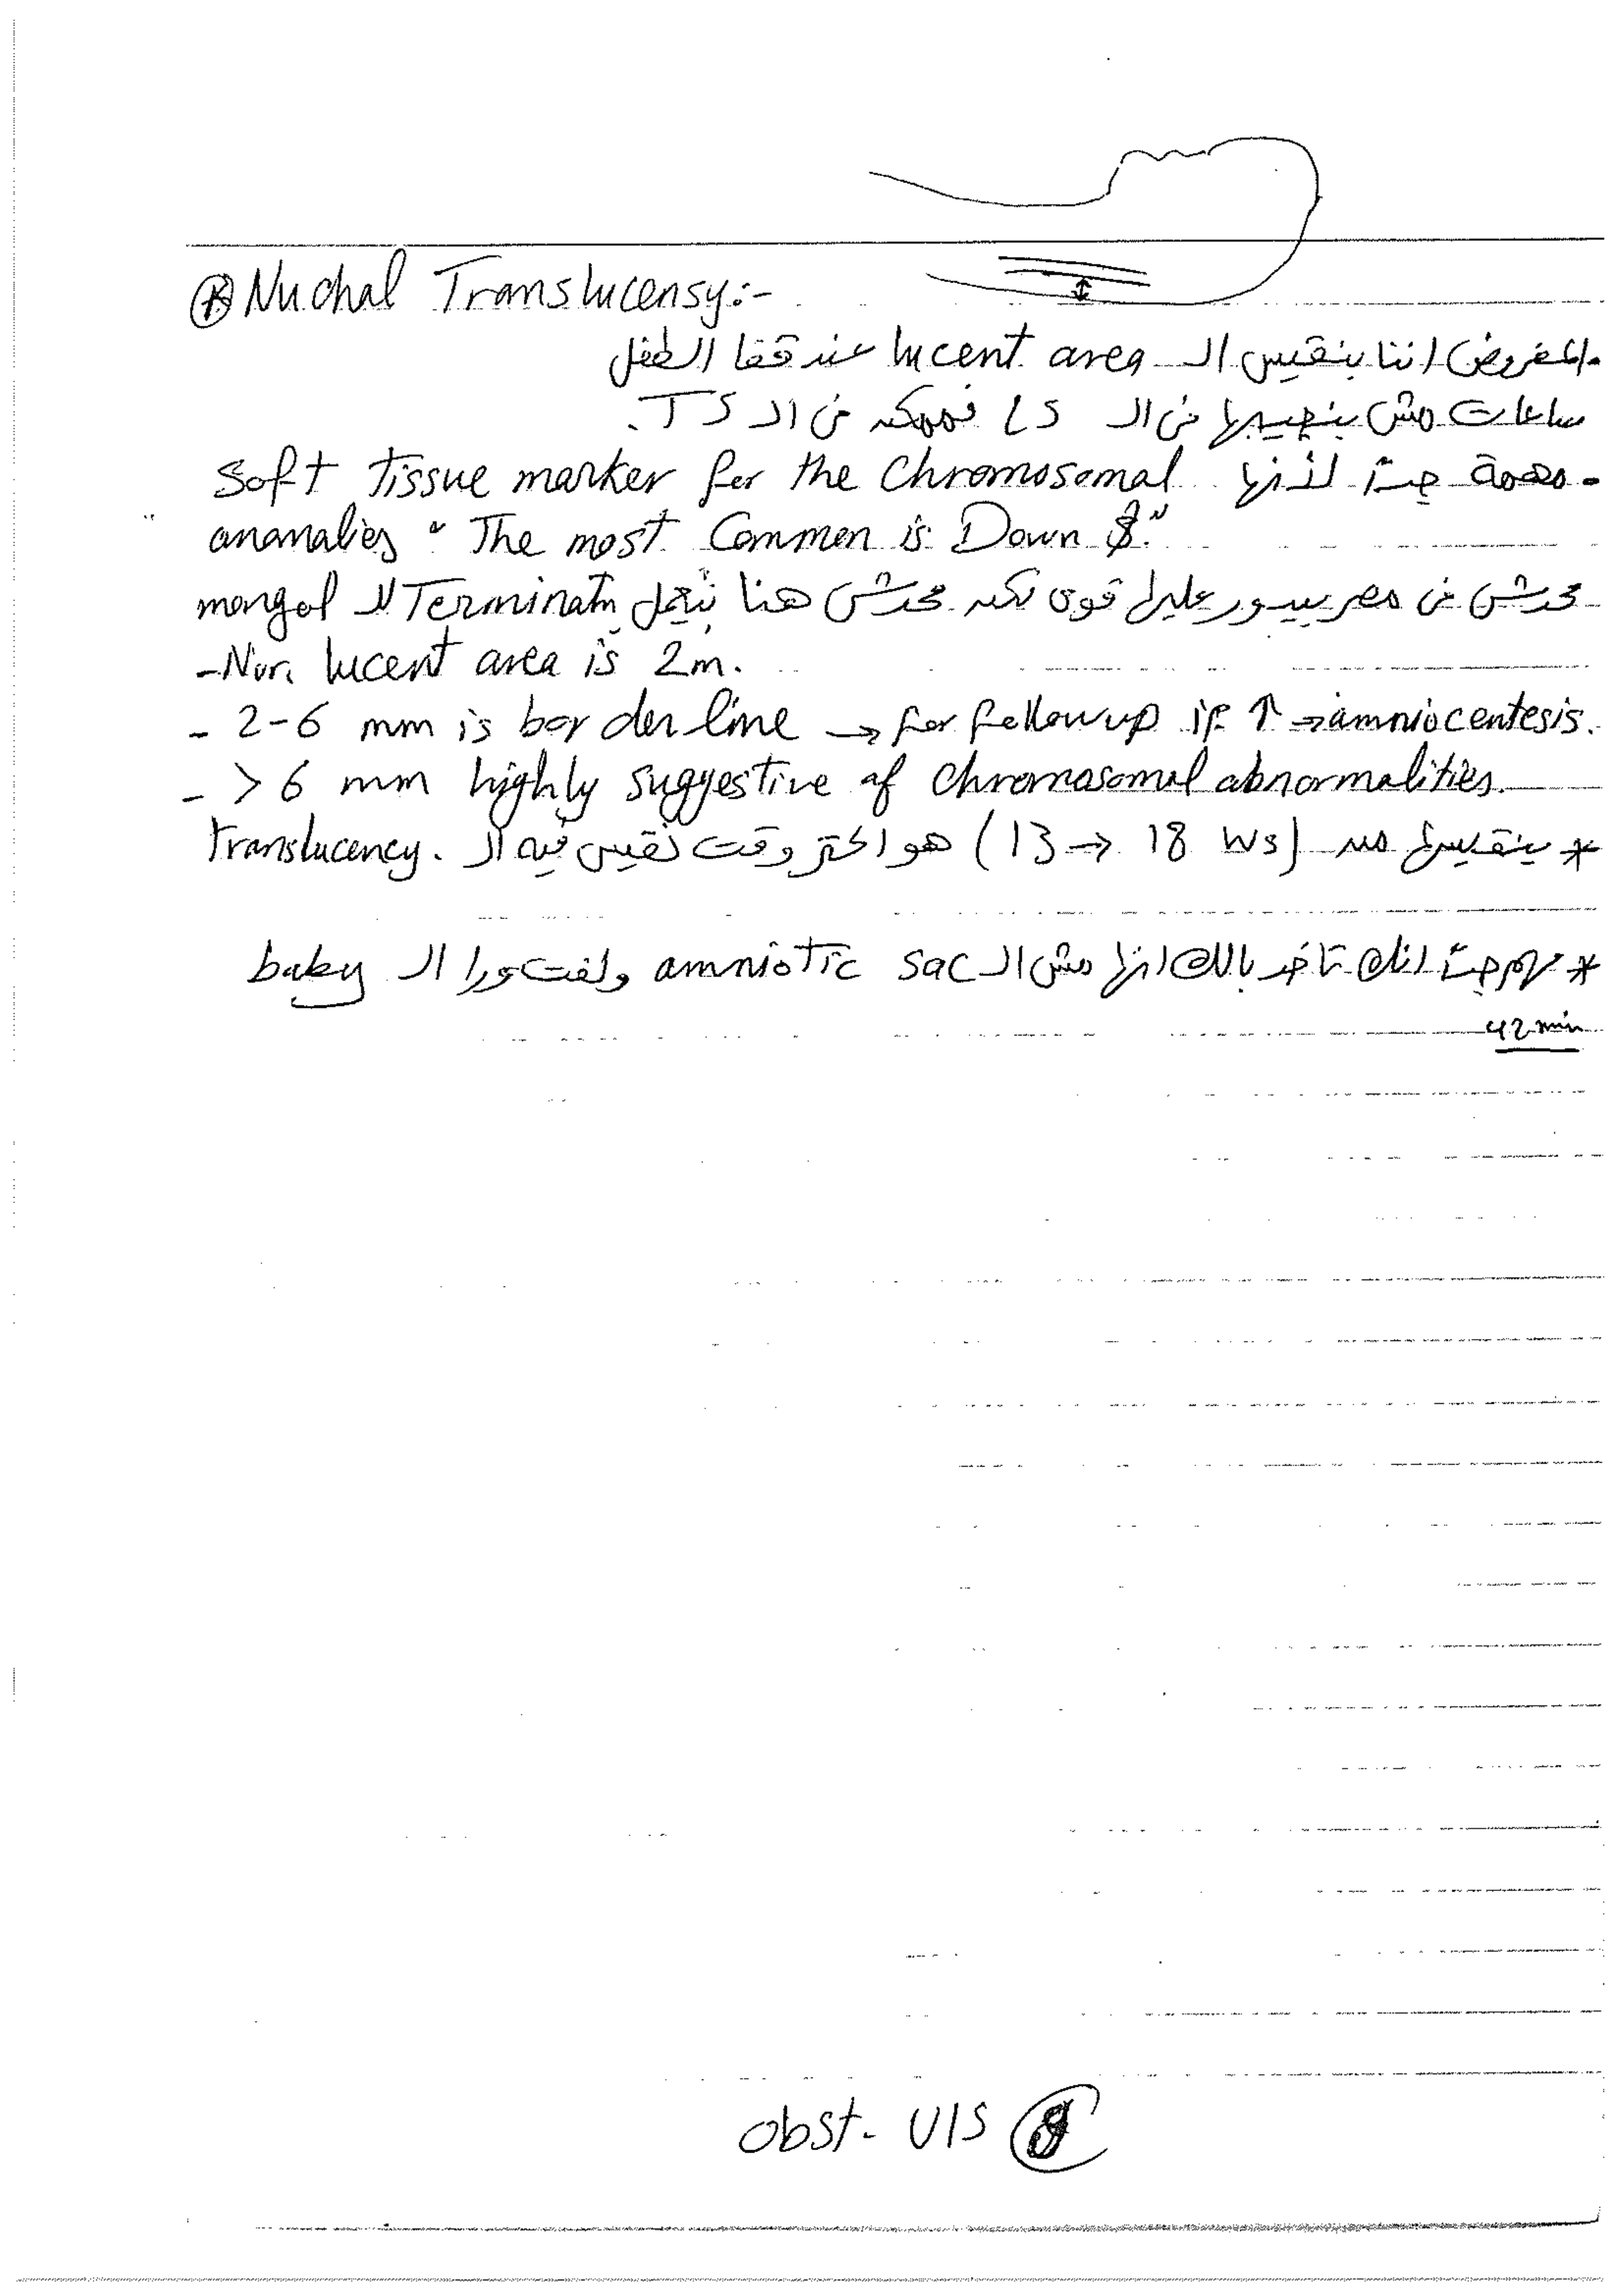 Nuchal Translucensy:-
- المفروض اننا بنقيس الـ lucent area عند قفا الطفل
ساعات مش بنجيبها من الـ LS فممكن من الـ TS.
- مهمة جداً لأنها Soft tissue marker for the Chromosomal
anamalies " The most Common is Down $."
محدش في مصر بيدور عليها قوى لكن محدش هنا بيعمل Terminatn لل mongol
- Nor. lucent area is 2m.
- 2-6 mm is border line → for follow up if ↑ ⇒ amniocentesis.
- > 6 mm highly suggestive of Chromosomal abnormalities.
* بنقيسها من (13 → 18 Ws) هو اكتر وقت نقيس فيه الـ Translucency.
* مهم جداً انك تاخد بالك انها مش الـ amniotic sac ولفت ورا الـ baby
42 min
obst. U/S 8